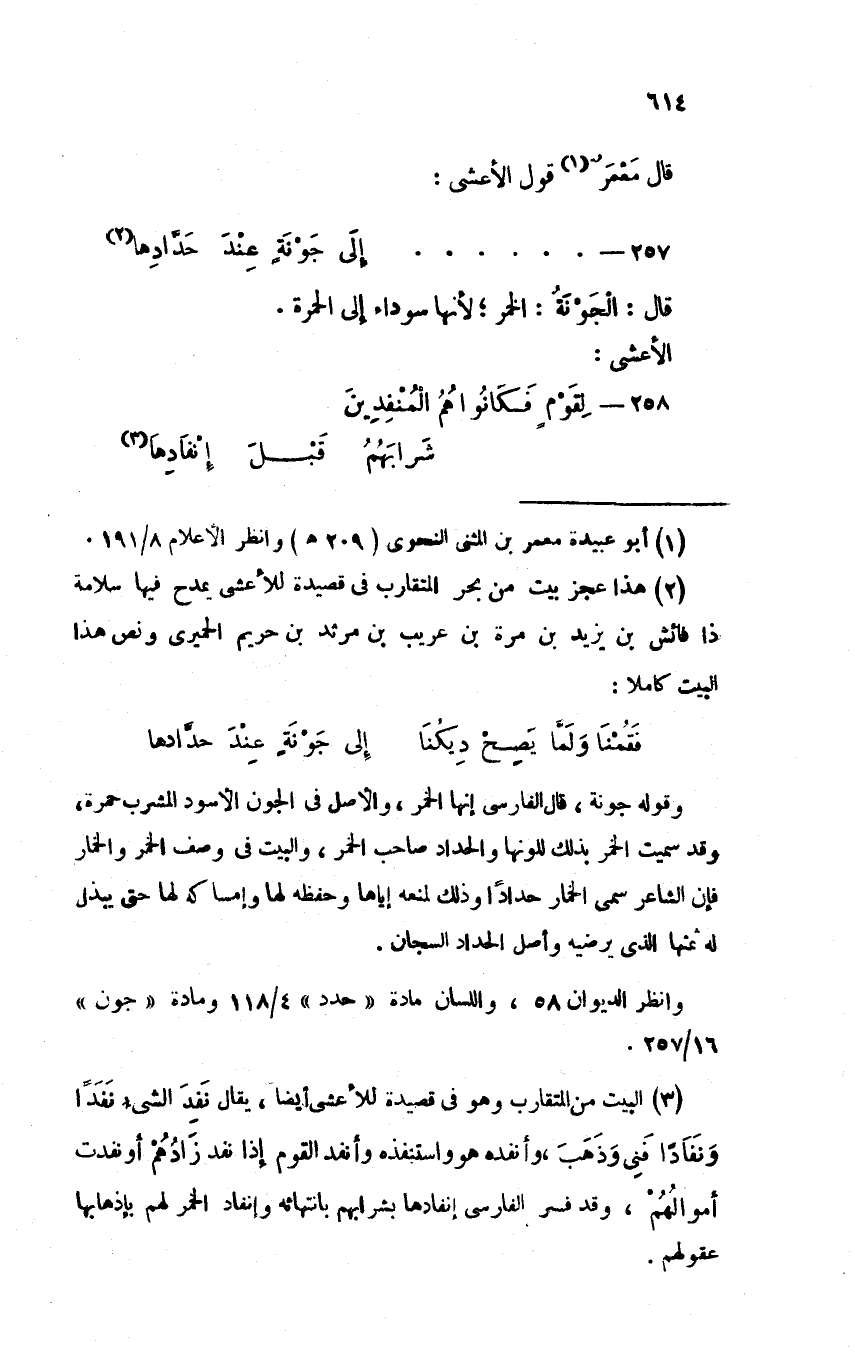 ٦١٤
قال مَعْمَرٌ(١) قول الأعشى :
٢٥٧ — . . . . . . إِلَى جَوْنَةٍ عِنْدَ حَدَّادِها(٢)
قال : الْجَوْنَةُ : الخمر ؛ لأنها سوداء إلى الحمرة .
الأعشى :
٢٥٨ — لِقَوْمٍ فَكَانُوا هُمُ الْمُنْفِدِينَ
شَرابَهُمُ قَبْلَ إِنْفَادِهَا(٣)
(١) أبو عبيدة معمر بن المثنى النحوى ( ٢٠٩ ه ) وانظر الأعلام ١٩١/٨ .
(٢) هذا عجز بيت من بحر المتقارب فى قصيدة للأعشى يمدح فيها سلامة
ذا فائش بن يزيد بن مرة بن عريب بن مرثد بن حريم الحميرى ونص هذا
البيت كاملا :
فَقُمْنَا وَلَمَّا يَصِحْ دِيكُنَا إِلى جَوْنَةٍ عِنْدَ حدَّادها
وقوله جونة ، قال الفارسى إنها الخمر ، والأصل فى الجون الأسود المشرب حمرة ،
وقد سميت الخمر بذلك للونها والحداد صاحب الخمر ، والبيت فى وصف الخمر والخمار
فإن الشاعر سمى الخمار حدادًا وذلك لمنعه إياها وحفظه لها وإمساكه لها حتى يبذل
له ثمنها الذى يرضيه وأصل الحداد السجان .
وانظر الديوان ٥٨ ، واللسان مادة « حدد » ١١٨/٤ ومادة « جون »
٢٥٧/١٦ .
(٣) البيت من المتقارب وهو فى قصيدة للأعشى أيضا ، يقال نَفِدَ الشىء نَفَدًا
وَنَفَادًا فَنِى وَذَهَبَ ، وأنفده هو واستنفذه وأنفد القوم إذا نفد زَادُهُمْ أو نفدت
أموالُهُمْ ، وقد فسر الفارسى إنفادها بشرابهم بانتهائه وإنفاد الخمر لهم بإذهابها
عقولهم .